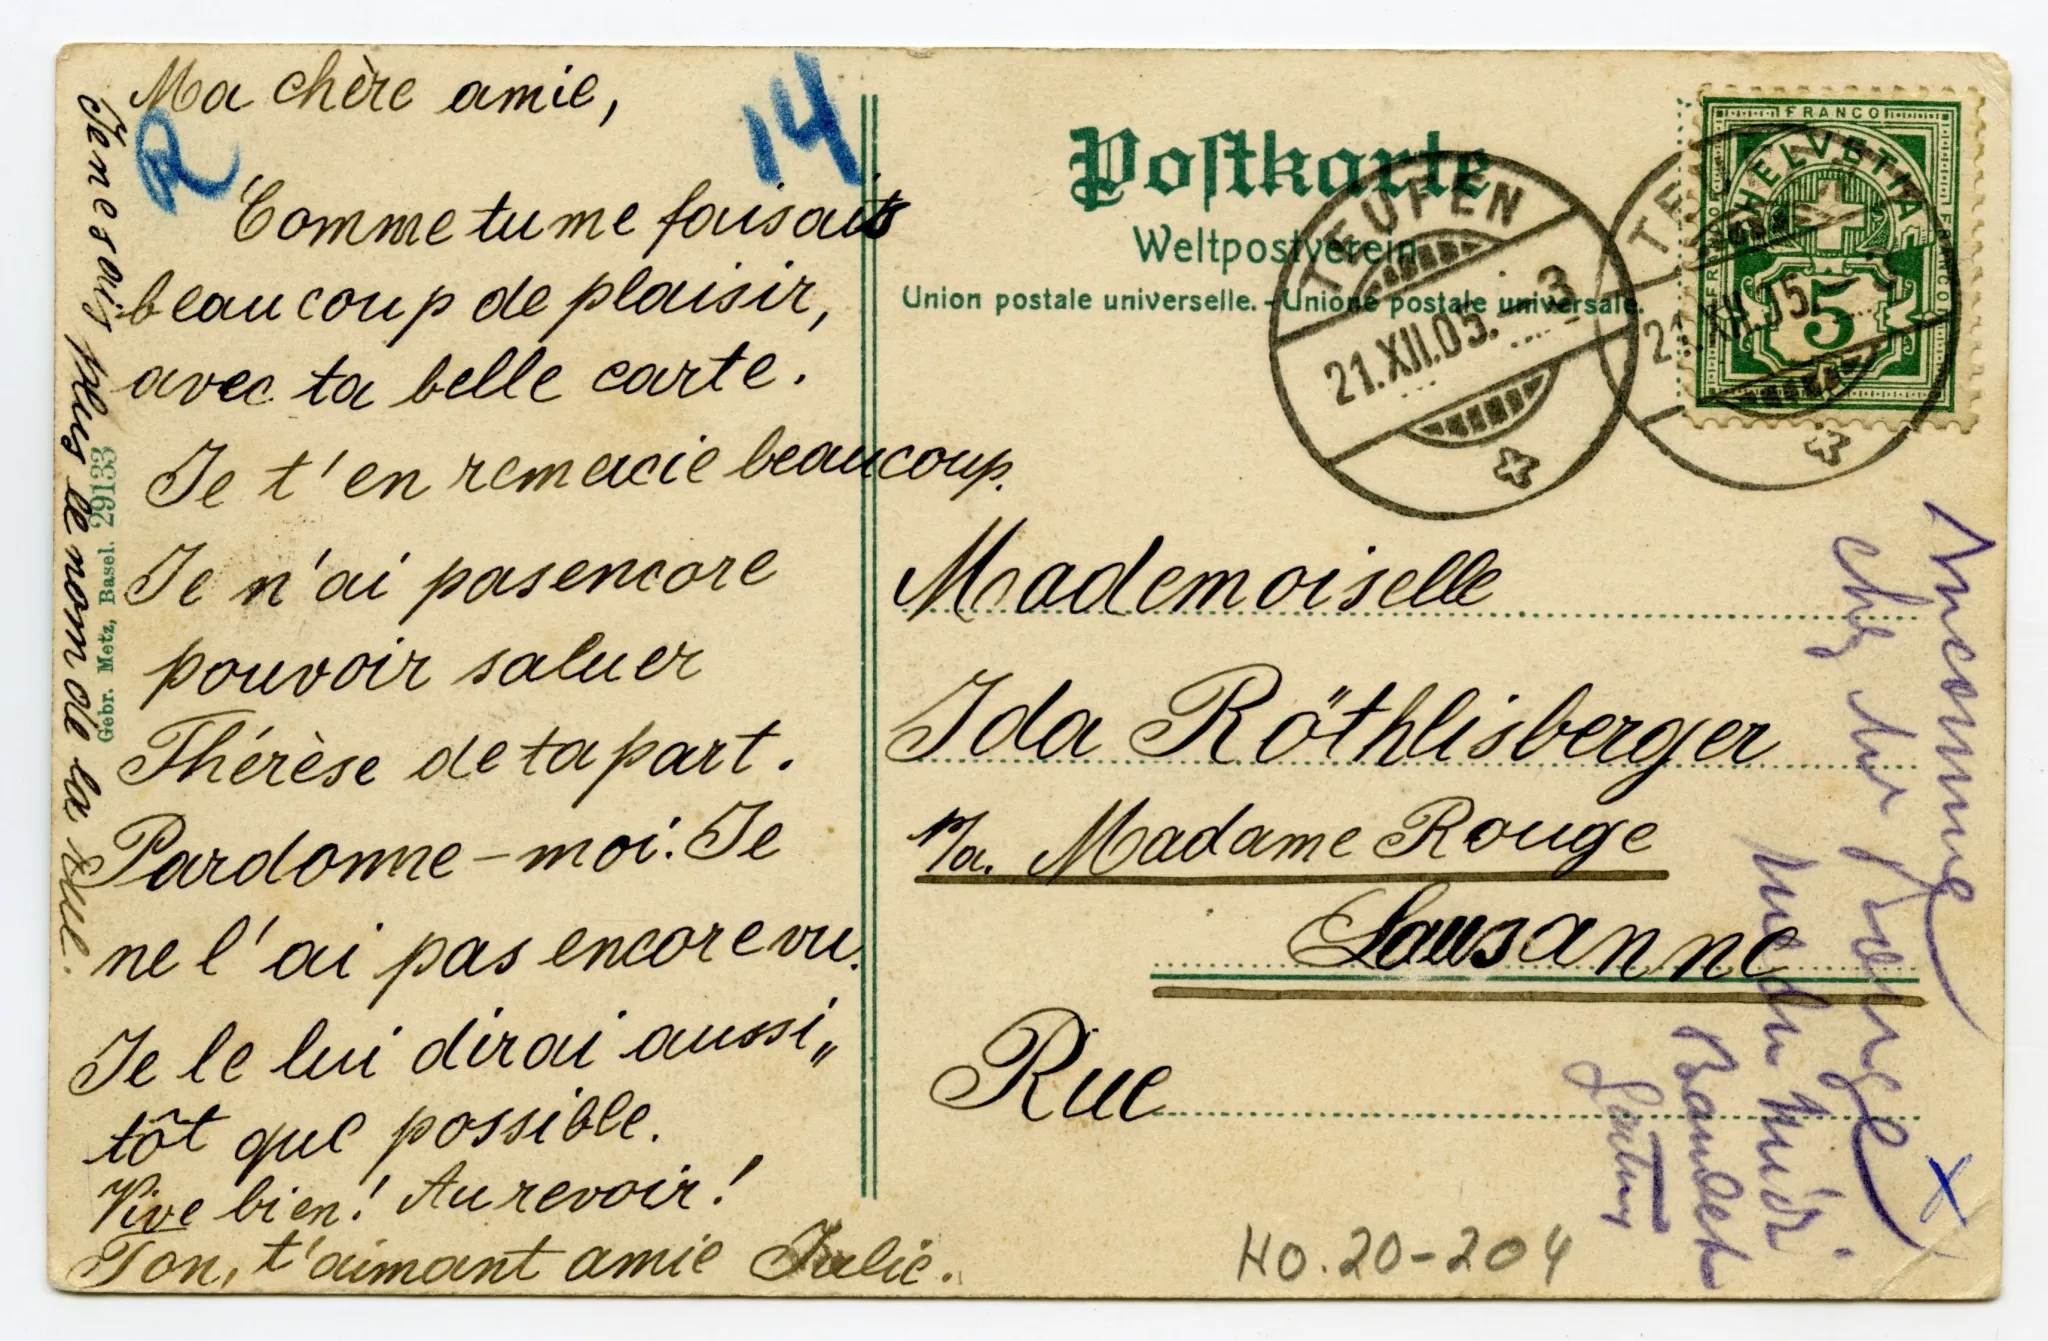 Ma chère amie,
R
14
Comme tu me faisais
beaucoup de plaisir,
avec ta belle carte.
Je t'en remercie beaucoup.
Je n'ai pas encore
pouvoir saluer
Thérèse de ta part.
Pardonne-moi. Je
ne l'ai pas encore vu.
Je le lui dirai aussi„
tôt que possible.
Vive bien! Au revoir!
Ton, t'aimant amie Julie.
Je ne sais plus le nom de la rue.
Gebr. Metz, Basel. 29133
Postkarte
Weltpostverein
Union postale universelle. - Unione postale universale.
TEUFEN
21.XII.05. 3
TEUFEN
21.XII.05
FRANCO
FRANCO
FRANCO
HELVETIA
5
Mademoiselle
Ida Röthlisberger
p/a. Madame Rouge
Lausanne
Rue
Inconnue
chez Mr Rouge
X
HO.20-204